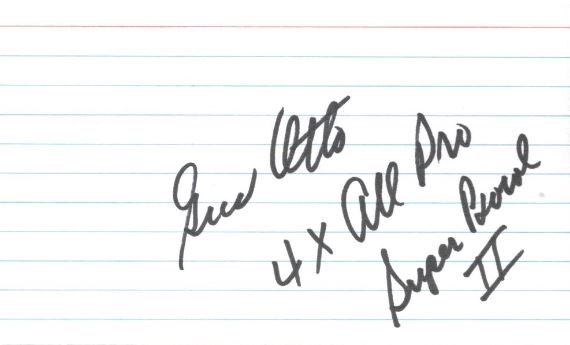 Gus Otto
4 X All Pro
Super Bowl
II